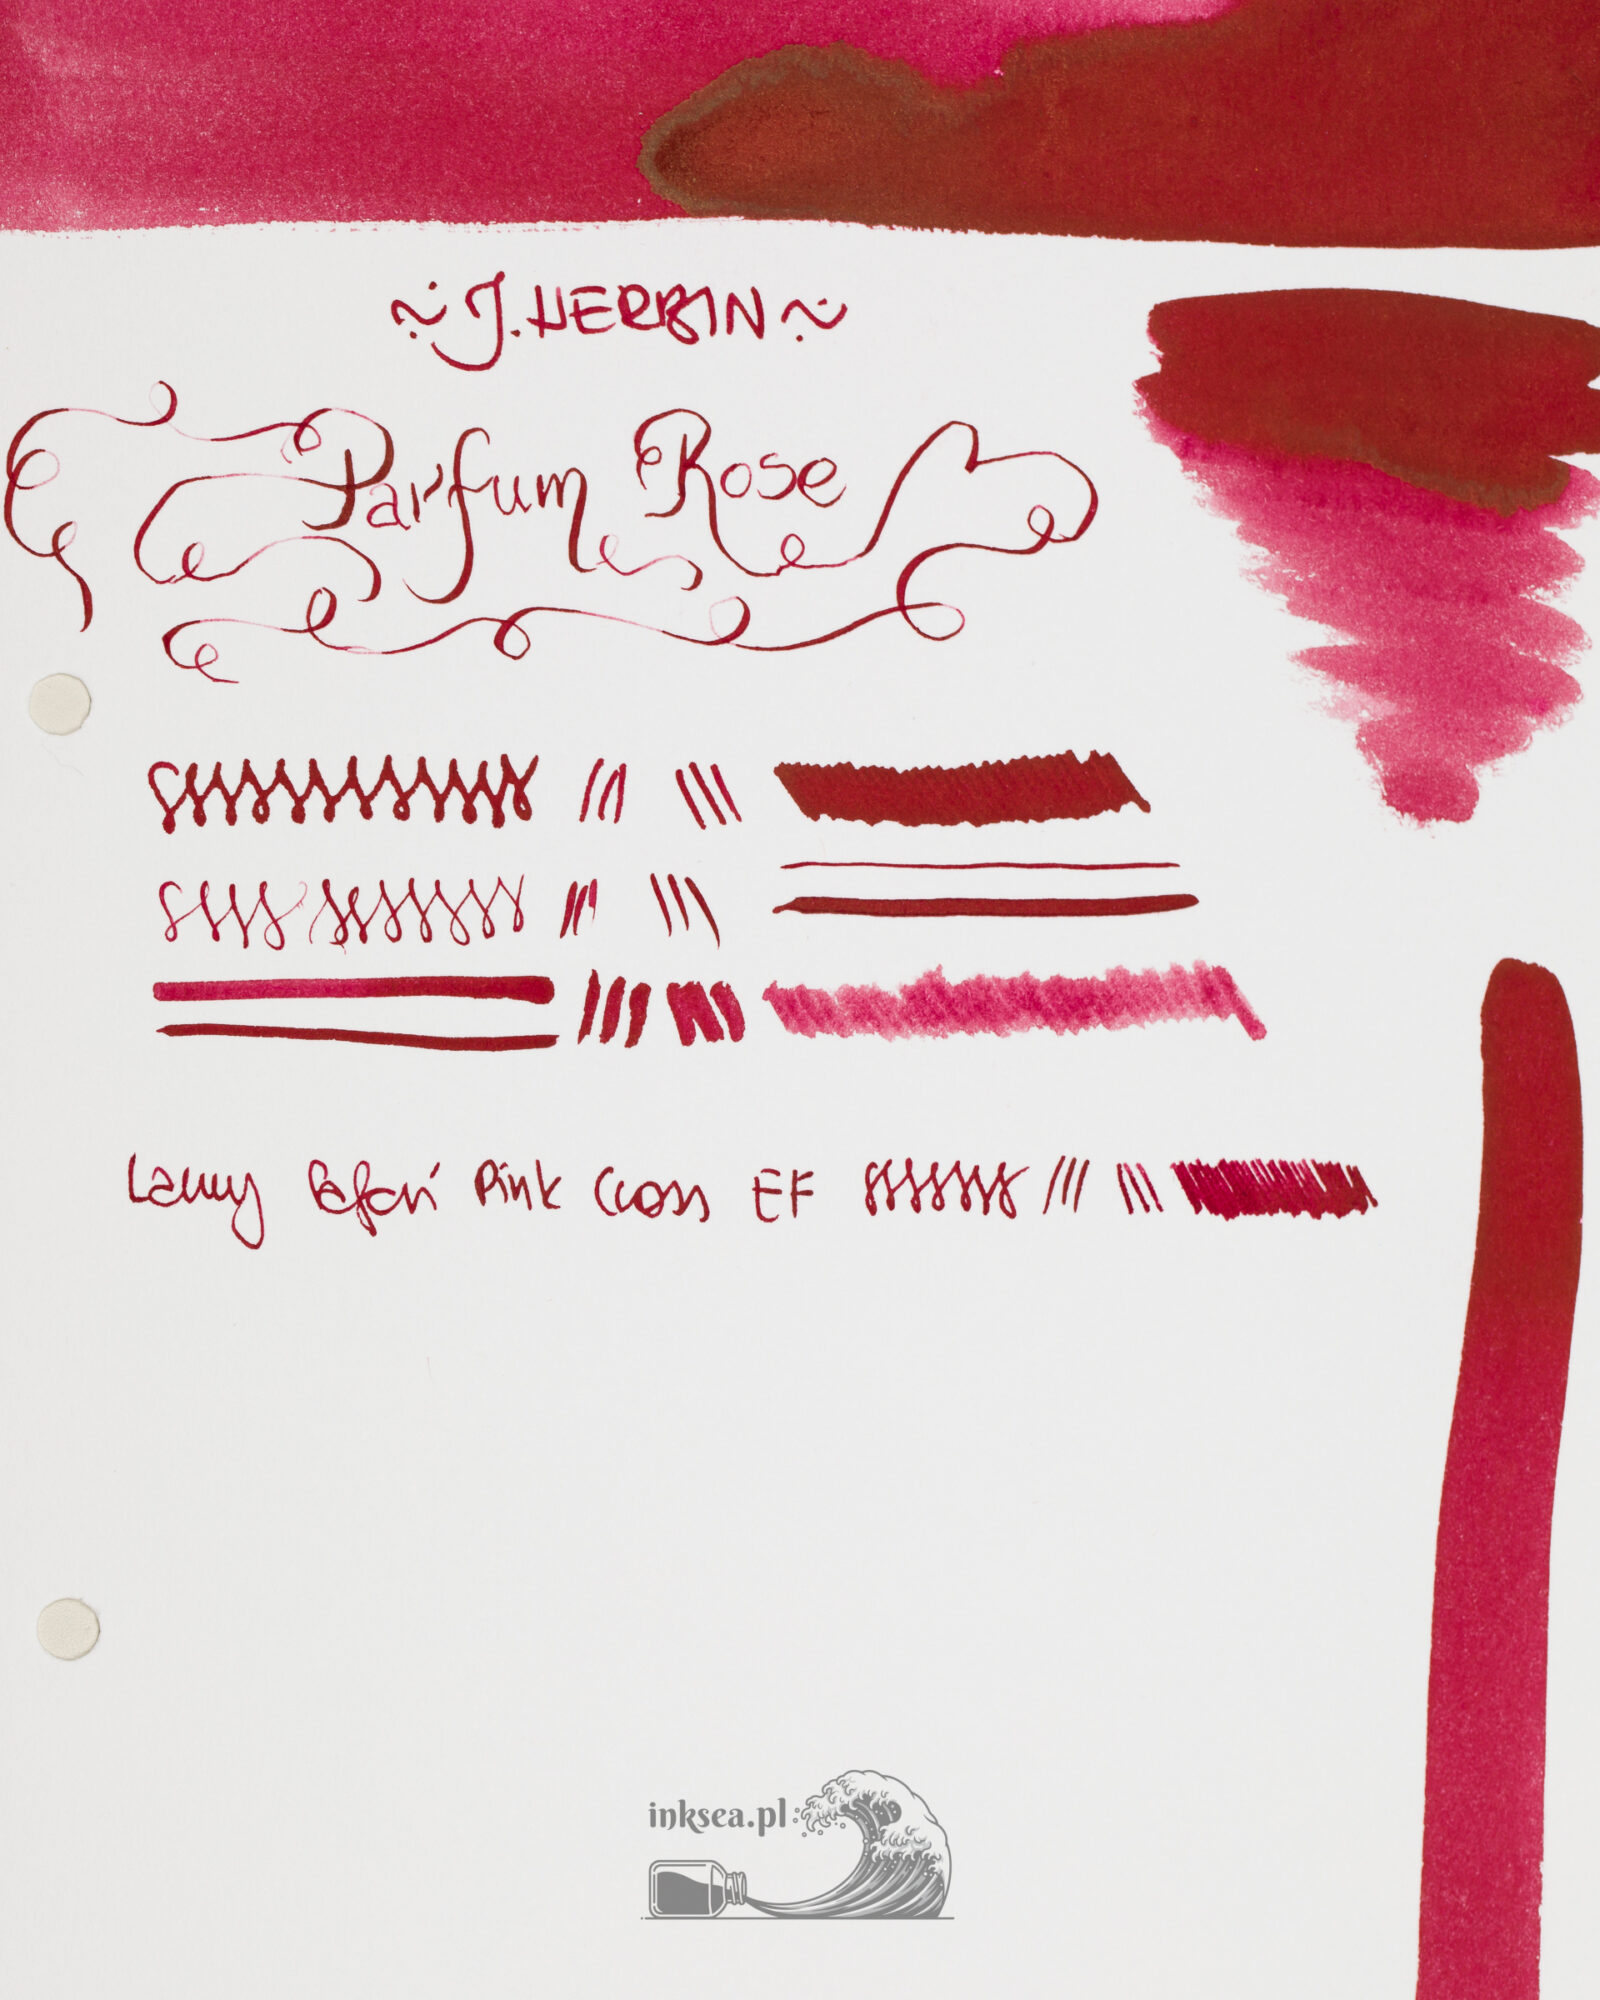 ~ J. HERBIN ~
Parfum Rose
Lamy Safari Pink Cross EF
inksea.pl